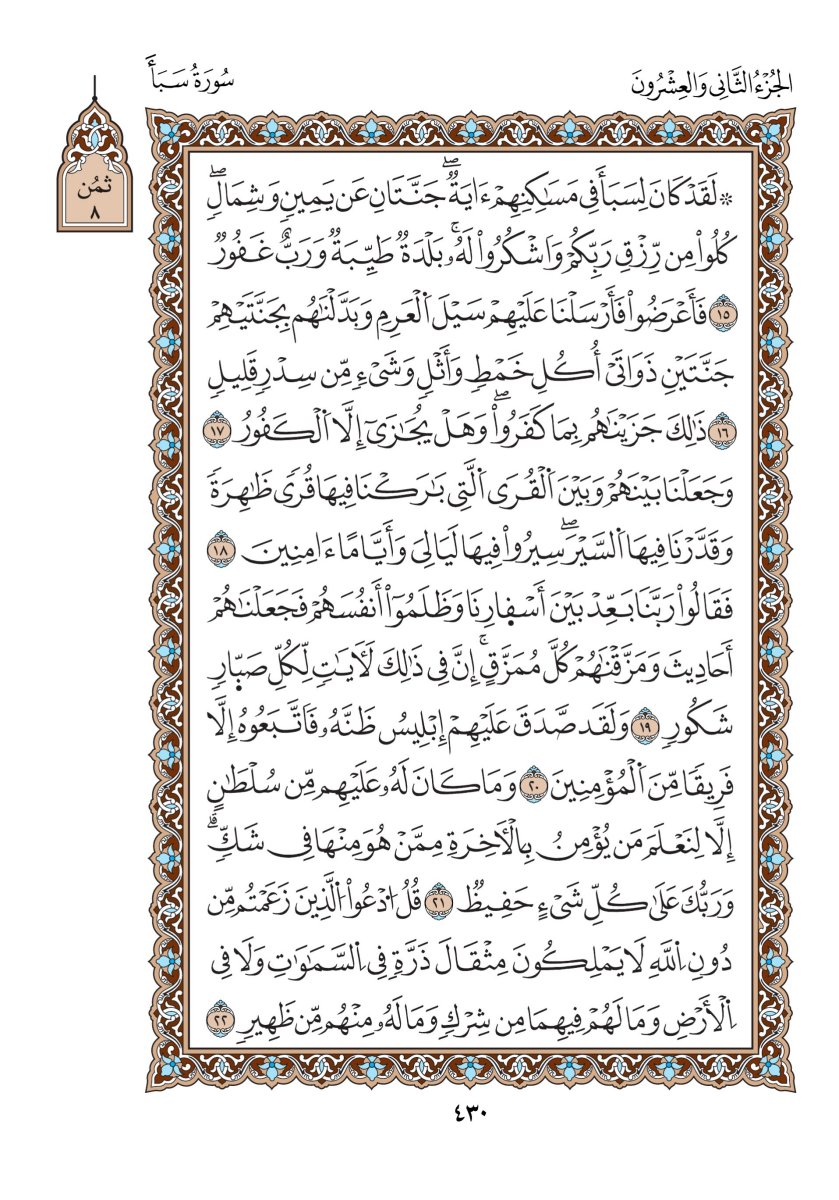 الجُزْءُ الثَّانِي وَالعِشْرُونَ
سُورَةُ سَبَأَ
ثمُن
٨
۞ لَقَدْ كَانَ لِسَبَأَ فِي مَسَٰكِنِهِمْ ءَايَةٌۖ جَنَّتَانِ عَن يَمِينٍ وَشِمَالٍۖ
كُلُواْ مِن رِّزْقِ رَبِّكُمْ وَاشْكُرُواْ لَهُۥۚ بَلْدَةٌ طَيِّبَةٌ وَرَبٌّ غَفُورٌ
١٥ فَأَعْرَضُواْ فَأَرْسَلْنَا عَلَيْهِمْ سَيْلَ اَلْعَرِمِ وَبَدَّلْنَٰهُم بِجَنَّتَيْهِمْ
جَنَّتَيْنِ ذَوَاتَىْ أُكُلِ خَمْطٍ وَأَثْلٍ وَشَىْءٍ مِّن سِدْرٍ قَلِيلٍ
١٦ ذَٰلِكَ جَزَيْنَٰهُم بِمَا كَفَرُواْۖ وَهَلْ يُجَٰزَىٰٓ إِلَّا اَلْكَفُورُ ١٧
وَجَعَلْنَا بَيْنَهُمْ وَبَيْنَ اَلْقُرَى اَلَّتِي بَٰرَكْنَا فِيهَا قُرًى ظَٰهِرَةً
وَقَدَّرْنَا فِيهَا اَلسَّيْرَۖ سِيرُواْ فِيهَا لَيَالِيَ وَأَيَّامًا ءَامِنِينَ ١٨
فَقَالُواْ رَبَّنَا بَعِّدْ بَيْنَ أَسْفارِنَا وَظَلَمُوٓاْ أَنفُسَهُمْ فَجَعَلْنَٰهُمْ
أَحَادِيثَ وَمَزَّقْنَٰهُمْ كُلَّ مُمَزَّقٍۚ إِنَّ فِي ذَٰلِكَ لَأٓيَٰتٍ لِّكُلِّ صَبّارٍ
شَكُورٍ ١٩ وَلَقَد صَّدَقَ عَلَيْهِمْ إِبْلِيسُ ظَنَّهُۥ فَاتَّبَعُوهُ إِلَّا
فَرِيقًا مِّنَ اَلْمُؤْمِنِينَ ٢٠ وَمَا كَانَ لَهُۥ عَلَيْهِم مِّن سُلْطَٰنٍ
إِلَّا لِنَعْلَمَ مَن يُؤْمِنُ بِالْأَخِرَةِ مِمَّنْ هُوَ مِنْهَا فِي شَكٍّۗ
وَرَبُّكَ عَلَىٰ كُلِّ شَىْءٍ حَفِيظٌ ٢١ قُلُ اِدْعُواْ اَلَّذِينَ زَعَمْتُم مِّن
دُونِ اِللَّهِ لَا يَمْلِكُونَ مِثْقَالَ ذَرَّةٍ فِي اِلسَّمَٰوَٰتِ وَلَا فِي
اِلْأَرْضِ وَمَا لَهُمْ فِيهِمَا مِن شِرْكٍ وَمَا لَهُۥ مِنْهُم مِّن ظَهِيرٍ ٢٢
٤٣٠